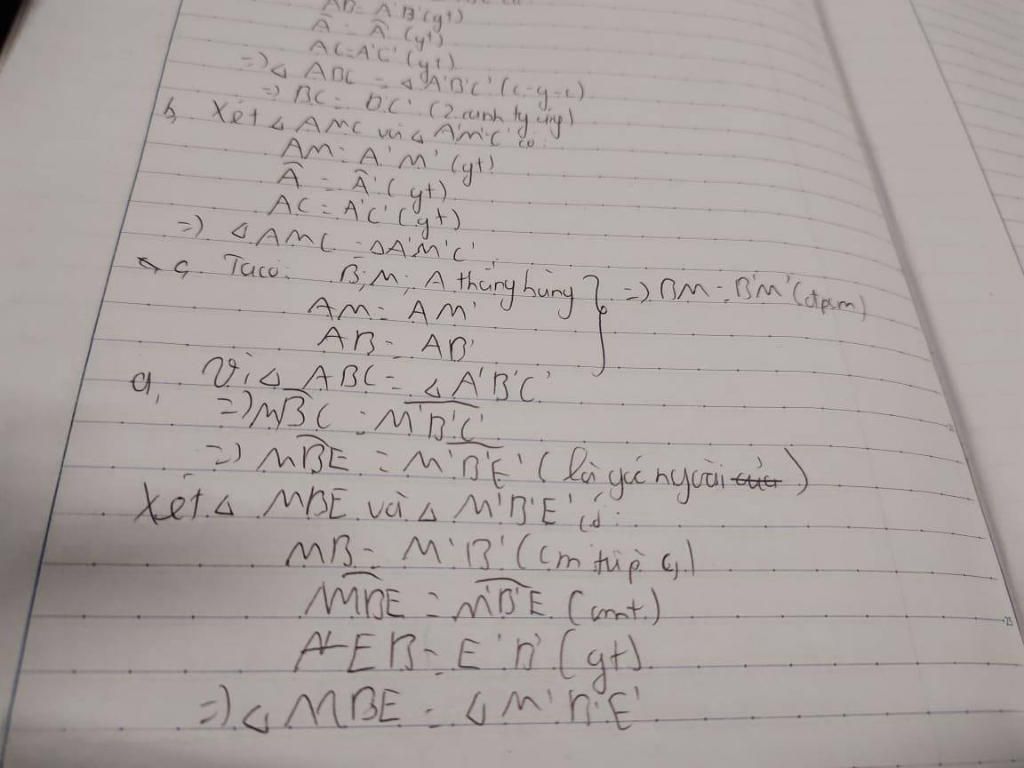 AB = A'B' (gt)
Â = Â' (gt)
AC = A'C' (gt)
=> △ ABC = △ A'B'C' (c-g-c)
=> BC = B'C' (2 cạnh tý ứng)
b, Xét △ AMC và △ A'M'C' có:
AM = A'M' (gt)
Â = Â' (gt)
AC = A'C' (gt)
=> △AMC = △A'M'C'
c, Ta có: B; M; A thẳng hàng } => BM = B'M' (đpcm)
AM = AM'
AB = AB'
d, Vì △ ABC = △ A'B'C'
=> MBC = M'B'C'
=> MBE = M'B'E' (là góc ngoài của)
Xét △ MBE và △ M'B'E' có:
MB = M'B' (cm từ p c,)
MBE = M'B'E (cmt.)
EB = E'B' (gt)
=> △ MBE = △ M'B'E'